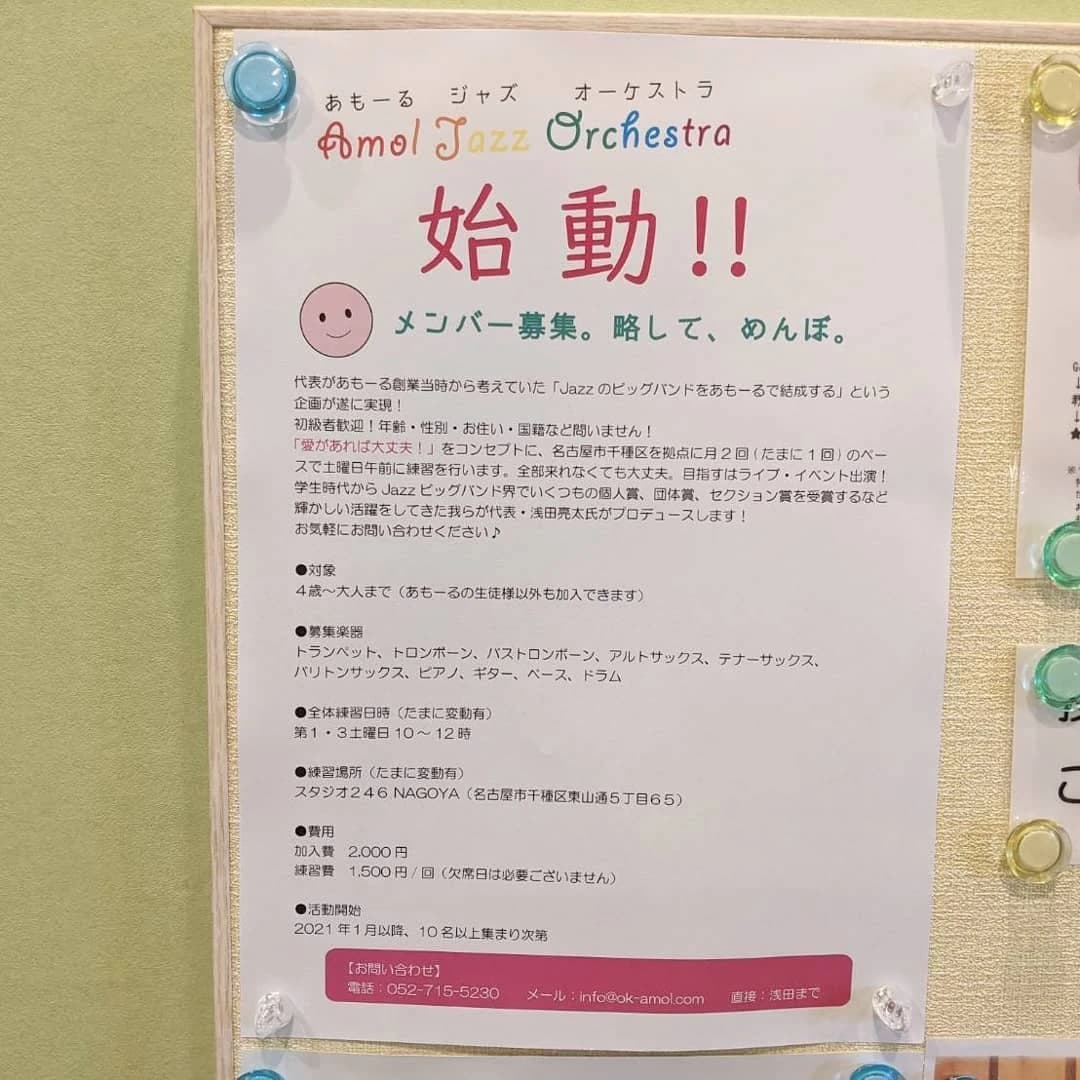 あもーる ジャズ オーケストラ
Amol Jazz Orchestra
始動!!
メンバー募集。略して、めんぼ。
代表があもーる創業当時から考えていた「Jazzのビッグバンドをあもーるで結成する」という
企画が遂に実現！
初級者歓迎！年齢・性別・お住い・国籍など問いません！
「愛があれば大丈夫！」をコンセプトに、名古屋市千種区を拠点に月２回(たまに１回)のペー
スで土曜日午前に練習を行います。全部来れなくても大丈夫。目指すはライブ・イベント出演！
学生時代からJazzビッグバンド界でいくつもの個人賞、団体賞、セクション賞を受賞するなど
輝かしい活躍をしてきた我らが代表・浅田亮太氏がプロデュースします！
お気軽にお問い合わせください♪
●対象
４歳〜大人まで（あもーるの生徒様以外も加入できます）
●募集楽器
トランペット、トロンボーン、バストロンボーン、アルトサックス、テナーサックス、
バリトンサックス、ピアノ、ギター、ベース、ドラム
●全体練習日時（たまに変動有）
第１・３土曜日 10〜12時
●練習場所（たまに変動有）
スタジオ２４６ NAGOYA（名古屋市千種区東山通５丁目６５）
●費用
加入費 2,000円
練習費 1,500円/回（欠席日は必要ございません）
●活動開始
2021年１月以降、10名以上集まり次第
【お問い合わせ】
電話：052-715-5230 メール：info@ok-amol.com 直接：浅田まで